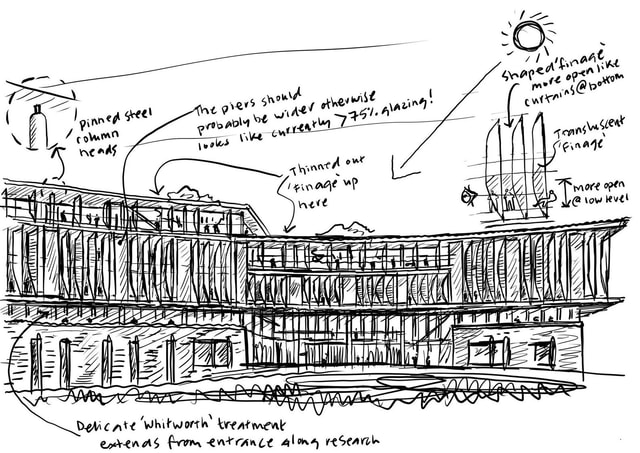 pinned steel
column
heads
The piers should
probably be wider otherwise
looks like currently >75% glazing!
Thinned out
'finage' up
here
shaped 'finage'
more open like
curtains @ bottom
Transluscent
'finage'
more open
@ low level
Delicate 'Whitworth' treatment
extends from entrance along research